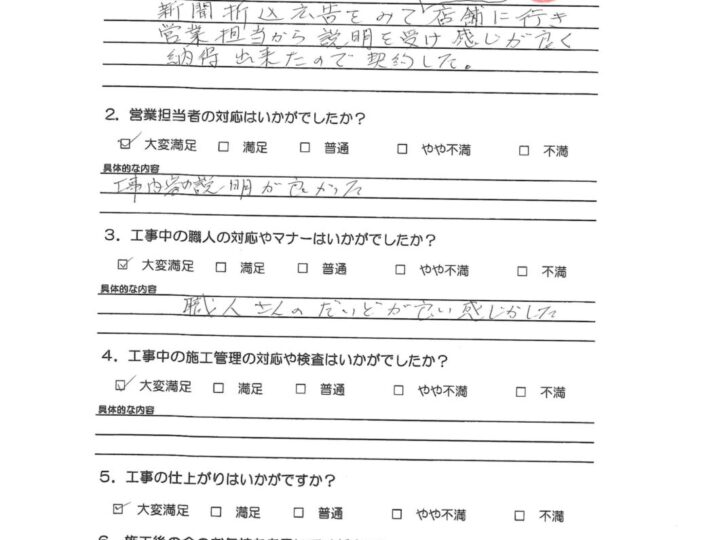 新聞折込広告をみて店舗に行き
営業担当から説明を受け感じが良く
納得出来たので契約した。
2．営業担当者の対応はいかがでしたか？
☑ 大変満足 □ 満足 □ 普通 □ やや不満 □ 不満
具体的な内容
工事内容の説明が良かった
3．工事中の職人の対応やマナーはいかがでしたか？
☑ 大変満足 □ 満足 □ 普通 □ やや不満 □ 不満
具体的な内容
職人さんのたいどが良い感じがした
4．工事中の施工管理の対応や検査はいかがでしたか？
☑ 大変満足 □ 満足 □ 普通 □ やや不満 □ 不満
具体的な内容
5．工事の仕上がりはいかがですか？
☑ 大変満足 □ 満足 □ 普通 □ やや不満 □ 不満